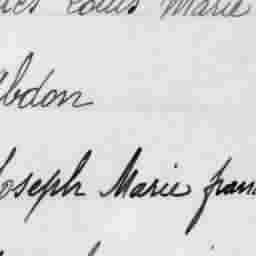 Louis Marie
Abdon
Joseph Marie fran